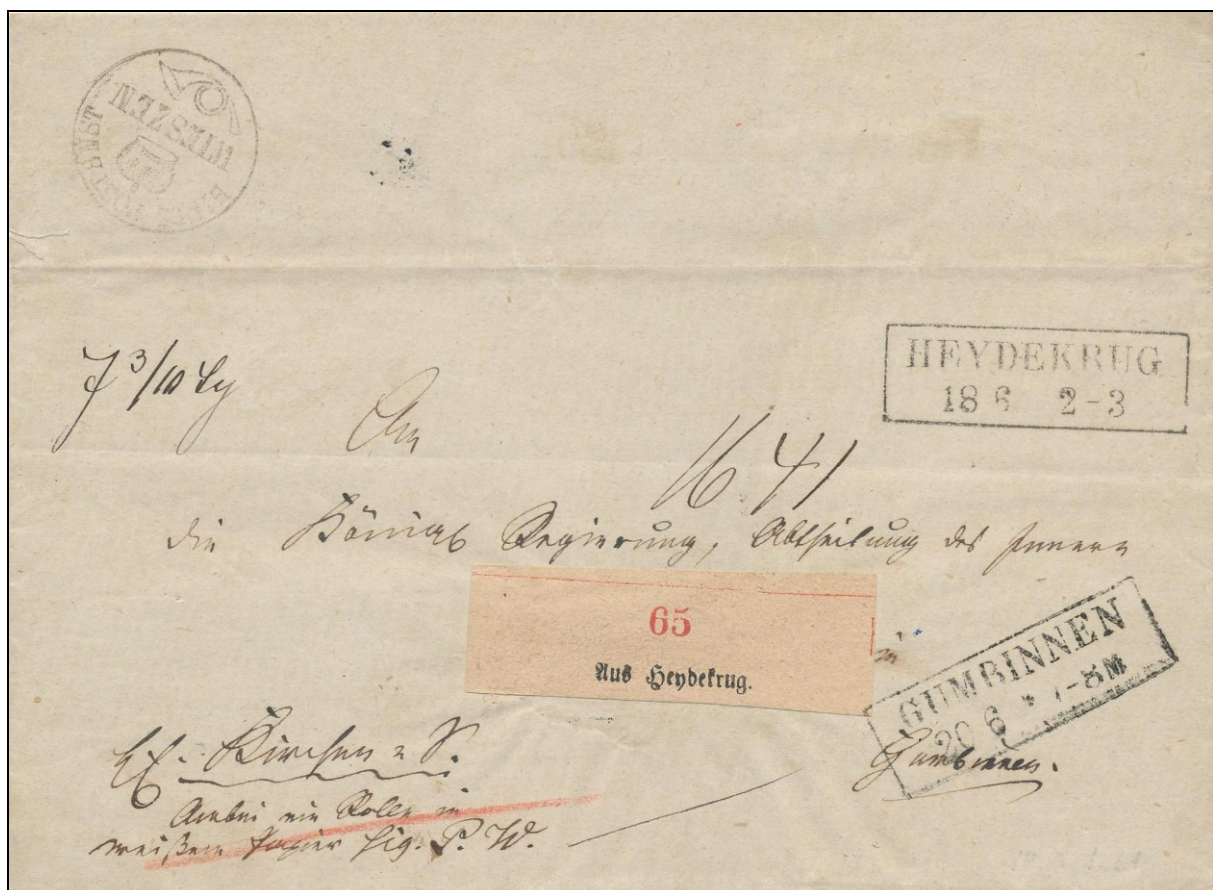 WIESZEN
HEYDEKRUG
18 6 2-3
7 3/10
An
16 41
die Königl Regierung, Abtheilung des Innern
65
Aus Heydekrug.
in
GUMBINNEN
20 6 7-8M
Gumbinnen.
Kirchen S.
Anbei ein Rolle in
weißem Papier sig. P. W.